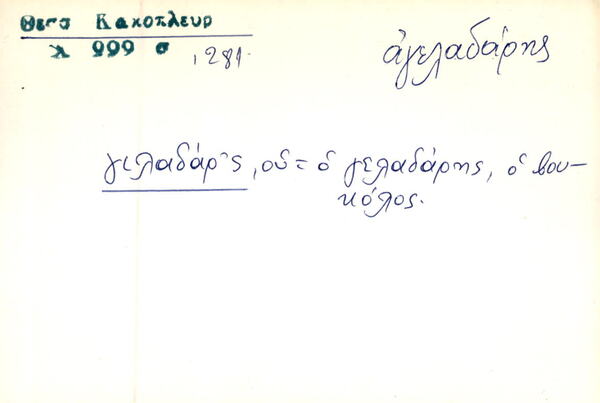 Θεσσ Κακοπλευρ
λ 999 σ , 281.
ἀγελαδάρης
γιλαδάρ'ς, οὑ = ὁ γελαδάρης, ὁ βου-
κόλος.